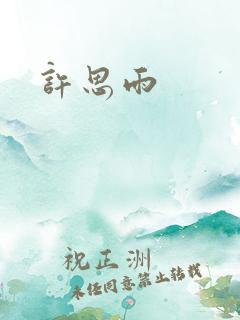 許思雨
祝正洲
未经同意禁止转载